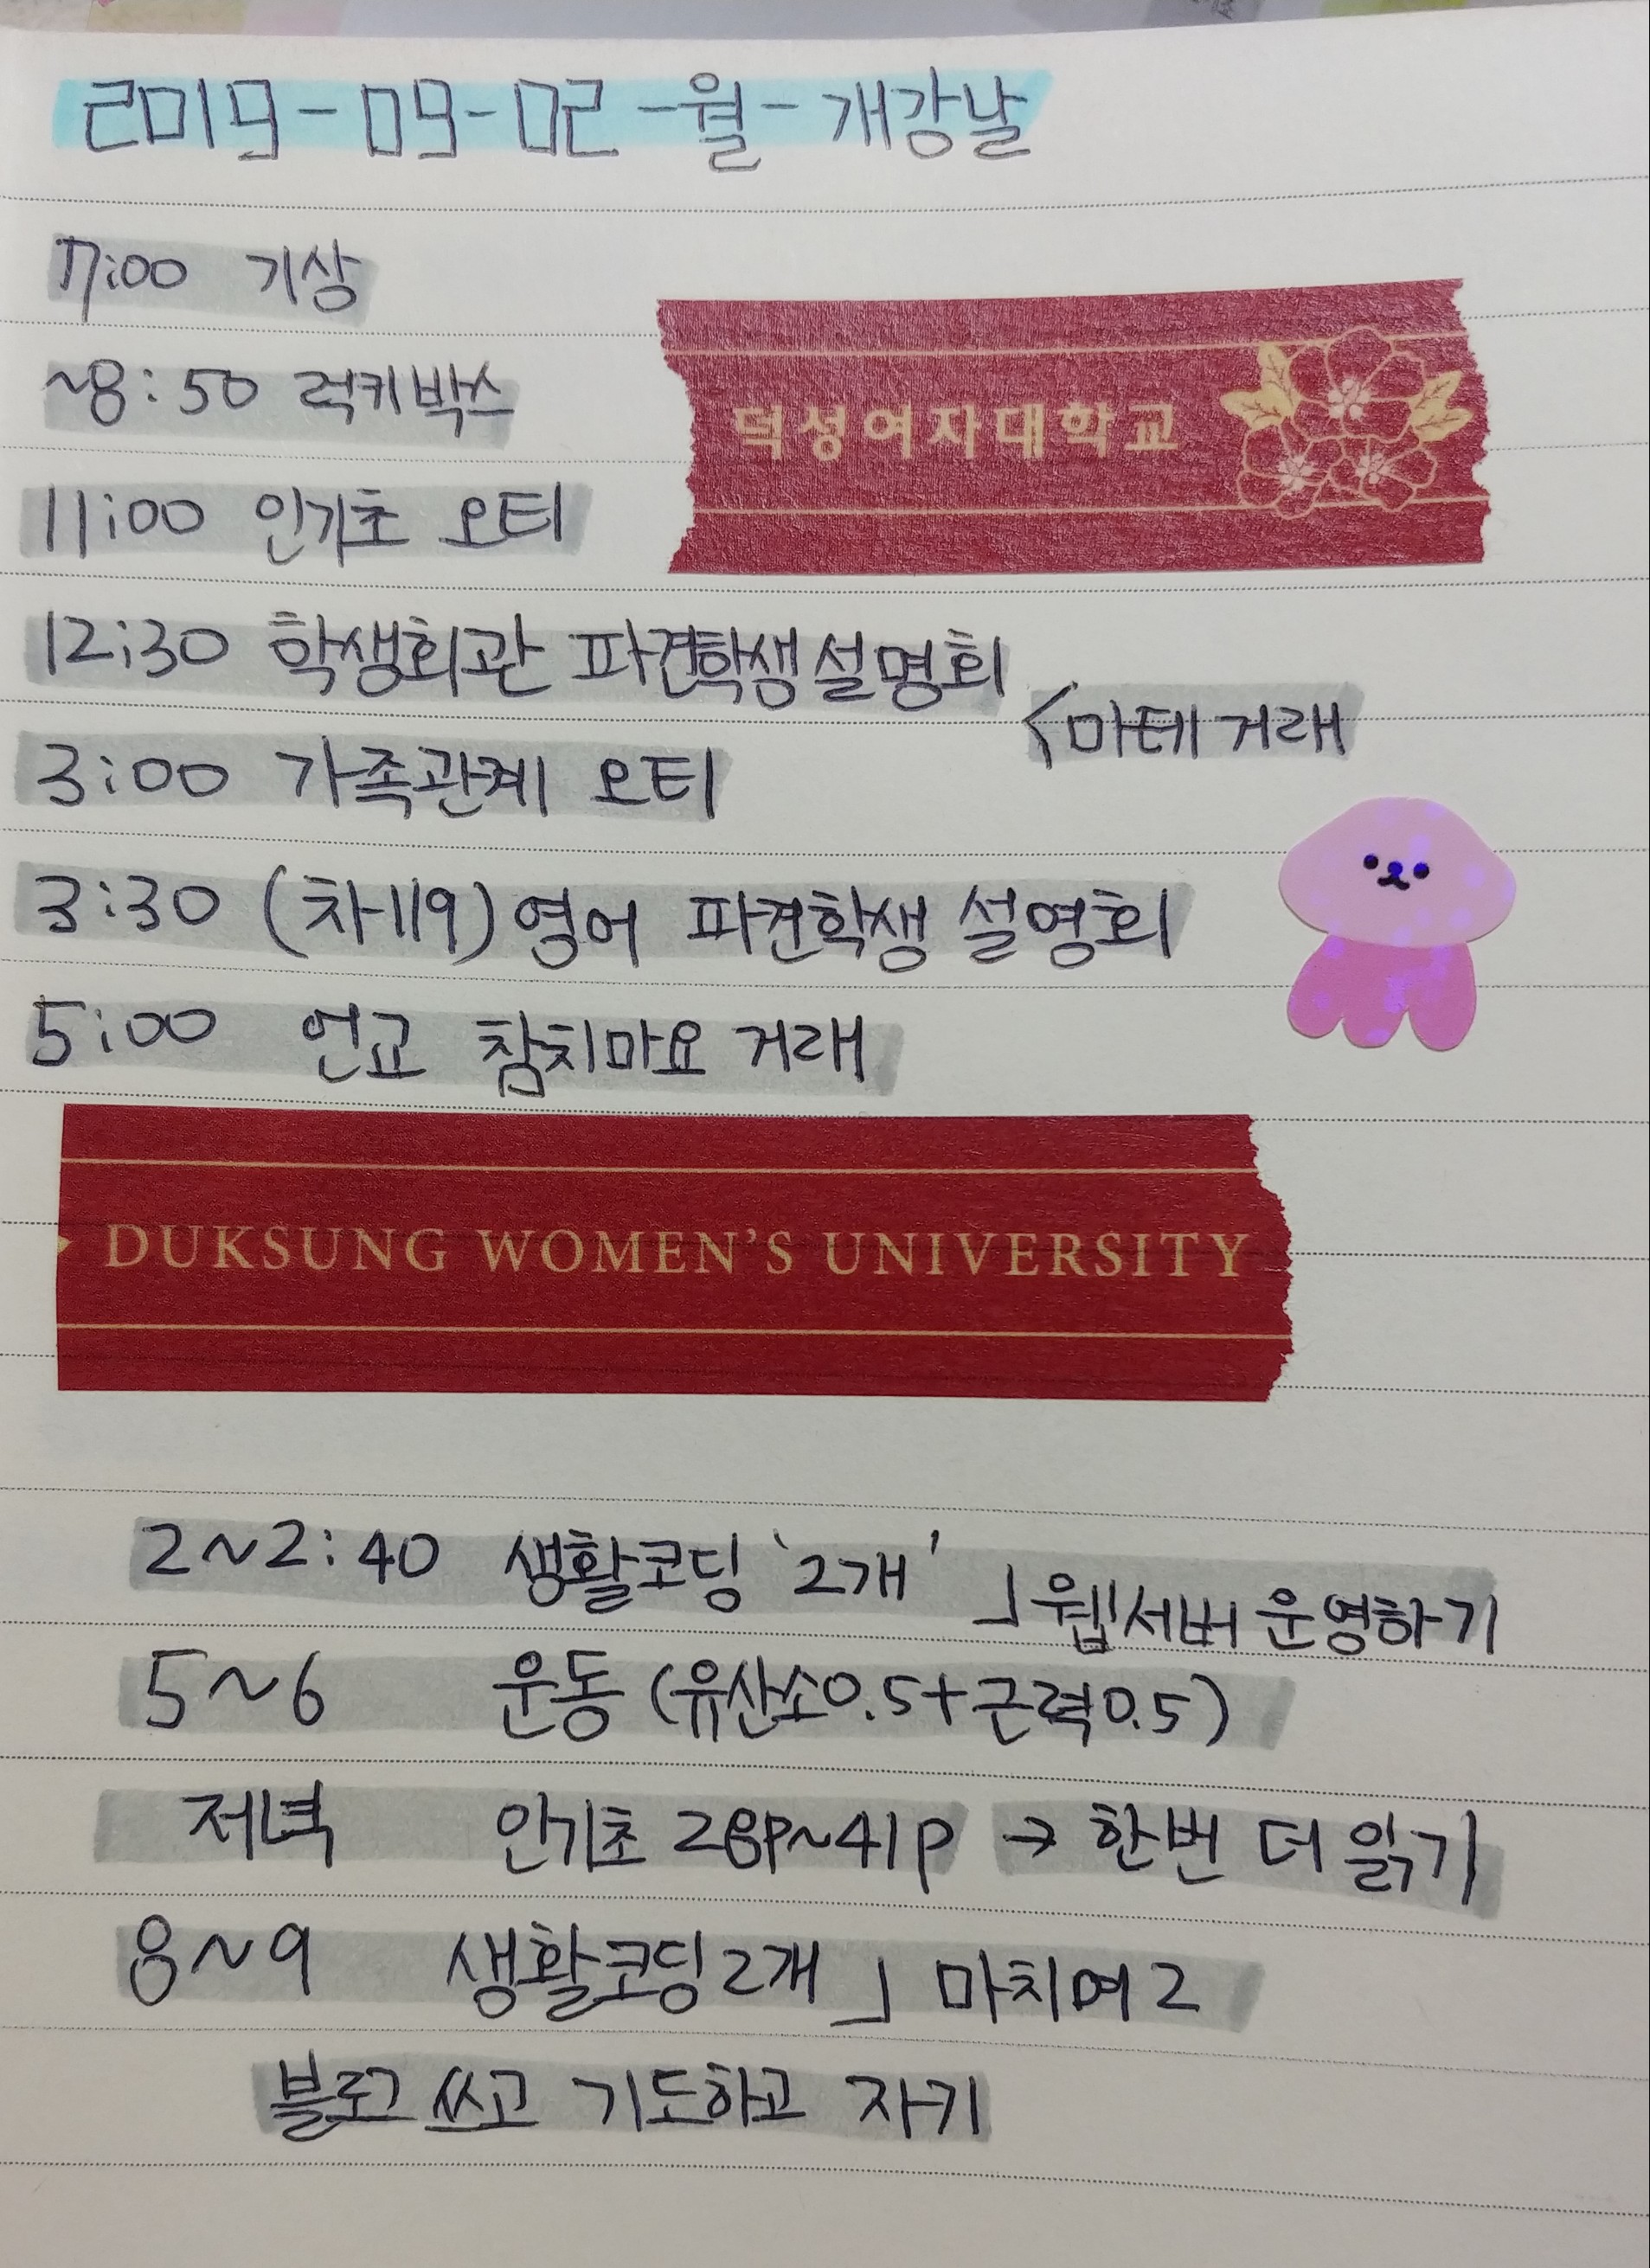 2019-09-02-월-개강날
7:00 기상
~8:50 럭키박스
덕성여자대학교
11:00 인기초 오티
12:30 학생회관 파견학생설명회
<마테 거래
3:00 가족관계 오티
3:30 (차-119) 영어 파견학생 설명회
5:00 언교 참치마요 거래
DUKSUNG WOMEN'S UNIVERSITY
2~2:40 생활코딩 '2개' 」웹서버 운영하기
5~6 운동 (유산소0.5+근력0.5)
저녁 인기초 28p~41p → 한번 더 읽기
8~9 생활코딩2개 」 마치며2
블로그 쓰고 기도하고 자기